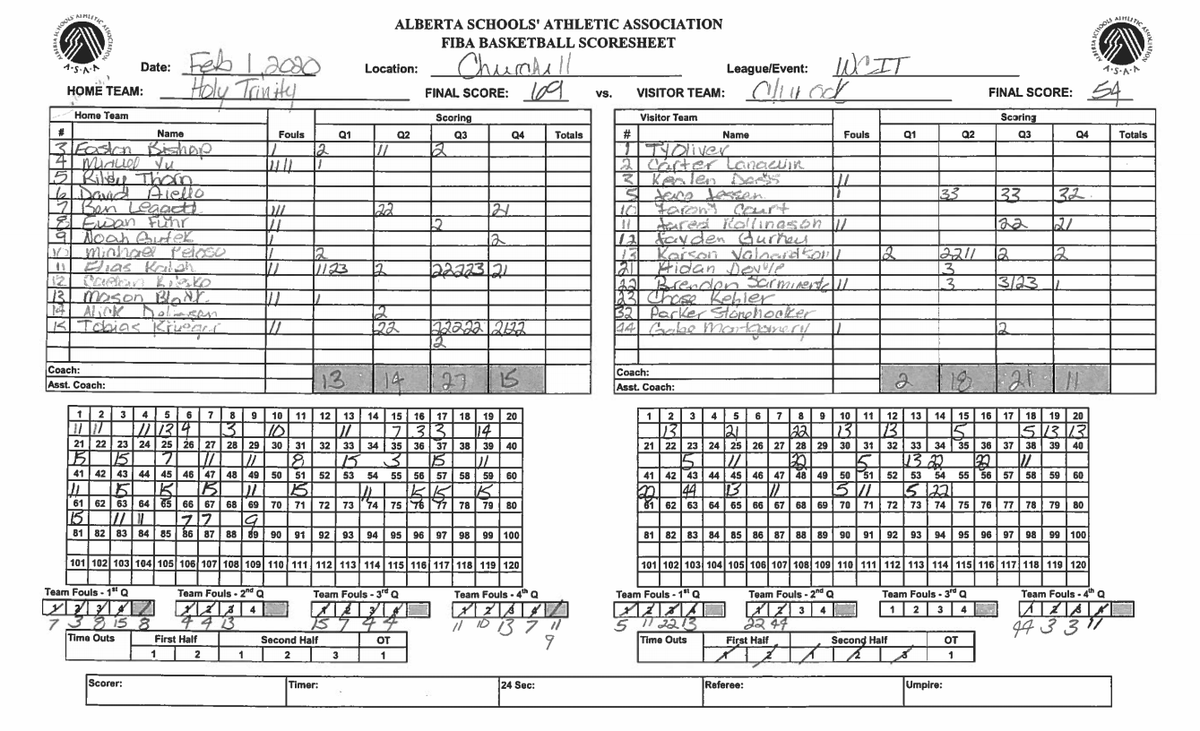 ALBERTA SCHOOLS' ATHLETIC ASSOCIATION
FIBA BASKETBALL SCORESHEET
A·S·A·A
A·S·A·A
Date: Feb 1, 2020 Location: Churchill League/Event: WCIT
HOME TEAM: Holy Trinity FINAL SCORE: 69 vs. VISITOR TEAM: FINAL SCORE: 54
Home Team Scoring
# Name Fouls Q1 Q2 Q3 Q4 Totals
3 Easton Bishop 1 2 11 2
4 Miguel Yu 1111 1
5 Riley Thorn
6 David Aiello
7 Ben Leggett 111 22 21
8 Ewan Fuhr 11 2
9 Noah 1 2
10 Michael Peloso 1 2
11 Elias 11 1123 2 22223 21
12
13 Mason Blank 11 1
14 Alick 2
15 Tobias Krueger 11 22 22222 2122
2
Coach:
Asst. Coach: 13 14 27 15
Visitor Team Scoring
# Name Fouls Q1 Q2 Q3 Q4 Totals
1 Ty Oliver
2 Carter
3 Keslen 11
5 Jessen 1 33 33 32
10 Court
11 Jared Rollingson 11 22 21
12 Jayden
13 Karson 1 2 2211 2 2
21 Aidan 3
22 Brendon 11 3 3123 1
23 Chase Kehler
32 Parker
44 Gabe Montgomery 1 2
Coach:
Asst. Coach: 2 18 21 11
1 2 3 4 5 6 7 8 9 10 11 12 13 14 15 16 17 18 19 20
11 11 11 13 4 3 10 11 7 3 3 14
21 22 23 24 25 26 27 28 29 30 31 32 33 34 35 36 37 38 39 40
15 15 7 11 11 8 15 3 15 11
41 42 43 44 45 46 47 48 49 50 51 52 53 54 55 56 57 58 59 60
11 15 15 15 11 15 11 15 15 15
61 62 63 64 65 66 67 68 69 70 71 72 73 74 75 76 77 78 79 80
15 11 11 7 7 9
81 82 83 84 85 86 87 88 89 90 91 92 93 94 95 96 97 98 99 100
101 102 103 104 105 106 107 108 109 110 111 112 113 114 115 116 117 118 119 120
1 2 3 4 5 6 7 8 9 10 11 12 13 14 15 16 17 18 19 20
13 21 22 13 13 5 5 13 13
21 22 23 24 25 26 27 28 29 30 31 32 33 34 35 36 37 38 39 40
5 11 22 5 13 22 22 11
41 42 43 44 45 46 47 48 49 50 51 52 53 54 55 56 57 58 59 60
22 44 13 11 5 11 5 22
61 62 63 64 65 66 67 68 69 70 71 72 73 74 75 76 77 78 79 80
81 82 83 84 85 86 87 88 89 90 91 92 93 94 95 96 97 98 99 100
101 102 103 104 105 106 107 108 109 110 111 112 113 114 115 116 117 118 119 120
Team Fouls - 1st Q Team Fouls - 2nd Q Team Fouls - 3rd Q Team Fouls - 4th Q
1 2 3 4 1 2 3 4 1 2 3 4 1 2 3 4
7 3 8 15 8 4 4 13 15 7 4 4 11 10 13 7 11
9
Time Outs First Half Second Half OT
1 2 1 2 3 1
Team Fouls - 1st Q Team Fouls - 2nd Q Team Fouls - 3rd Q Team Fouls - 4th Q
1 2 3 4 1 2 3 4 1 2 3 4 1 2 3 4
5 11 22 13 22 44 44 3 3 11
Time Outs First Half Second Half OT
1 2 1 2 3 1
Scorer: Timer: 24 Sec: Referee: Umpire: